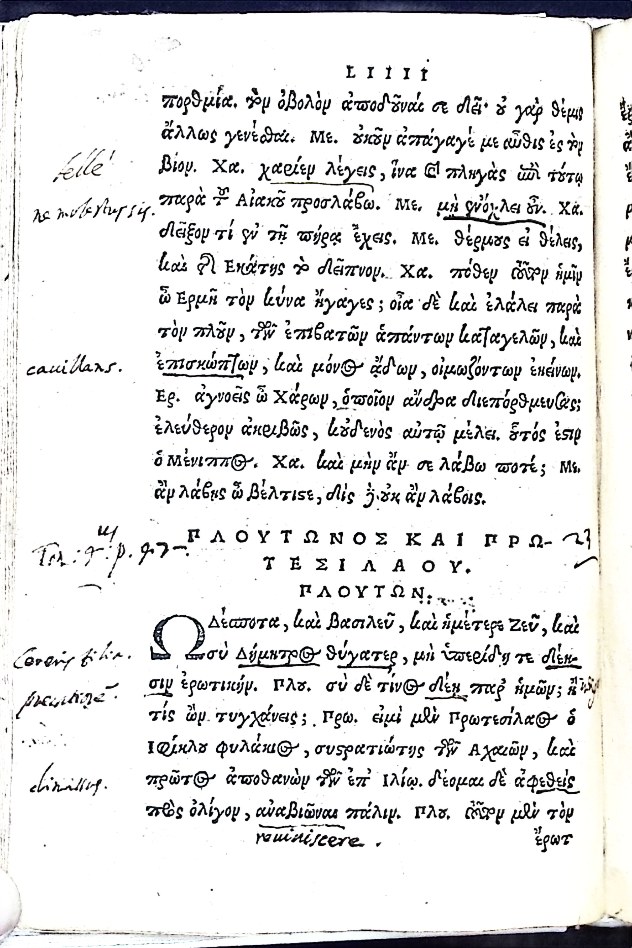 LIIII
πορθμία. τὸν ὀβολὸν ἀποδοῦναί σε δεῖ· οὐ γὰρ θέμις
ἄλλως γενέσθαι. Με. οὐκοῦν ἀπάγαγέ με αὖθις ἐς τὸν
βίον. Χα. χαρίεν λέγεις, ἵνα καὶ πληγὰς ἐπὶ τούτῳ
belle
παρὰ τοῦ Αἰακοῦ προσλάβω. Με. μὴ ἐνόχλει οὖν. Χα.
ne molestus sis.
δεῖξον τί ἐν τῇ πήρᾳ ἔχεις. Με. θέρμους εἰ θέλεις,
καὶ τῆς Εκάτης τὸ δεῖπνον. Χα. πόθεν τοῦτον ἡμῖν
ὦ Ερμῆ τὸν κύνα ἤγαγες; οἷα δὲ καὶ ἐλάλει παρὰ
τὸν πλοῦν, τῶν ἐπιβατῶν ἁπάντων καταγελῶν, καὶ
ἐπισκώπτων, καὶ μόνος ᾄδων, οἰμωζόντων ἐκείνων.
cauillans.
Ερ. ἀγνοεῖς ὦ Χάρων, ὁποῖον ἄνδρα διεπόρθμευσας;
ἐλεύθερον ἀκριβῶς, κοὐδενὸς αὐτῷ μέλει. οὗτός ἐστιν
ὁ Μένιππος. Χα. καὶ μὴν ἄν σε λάβω ποτέ; Με.
ἂν λάβῃς ὦ βέλτιστε, δὶς δὲ οὐκ ἂν λάβοις.
ΠΛΟΥΤΩΝΟΣ ΚΑΙ ΠΡΩ- 23
ΤΕΣΙΛΑΟΥ.
ΠΛΟΥΤΩΝ.
Ω Δέσποτα, καὶ βασιλεῦ, καὶ ἡμέτερε Ζεῦ, καὶ
σὺ Δήμητρος θύγατερ, μὴ ὑπερίδητε δέη-
Cereris filia.
σιν ἐρωτικήν. Πλου. σὺ δὲ τίνος δέῃ παρ' ἡμῶν; ἢ
τίς ὢν τυγχάνεις; Πρω. εἰμὶ μὲν Πρωτεσίλαος ὁ
Ιφίκλου φυλάκιος, συστρατιώτης τῶν Αχαιῶν, καὶ
πρῶτος ἀποθανὼν τῶν ἐπ' Ιλίῳ. δέομαι δὲ ἀφεθεὶς
dimissus.
πρὸς ὀλίγον, ἀναβιῶναι πάλιν. Πλου. τοῦτον μὲν τὸν
reuiuiscere.
ἔρωτ